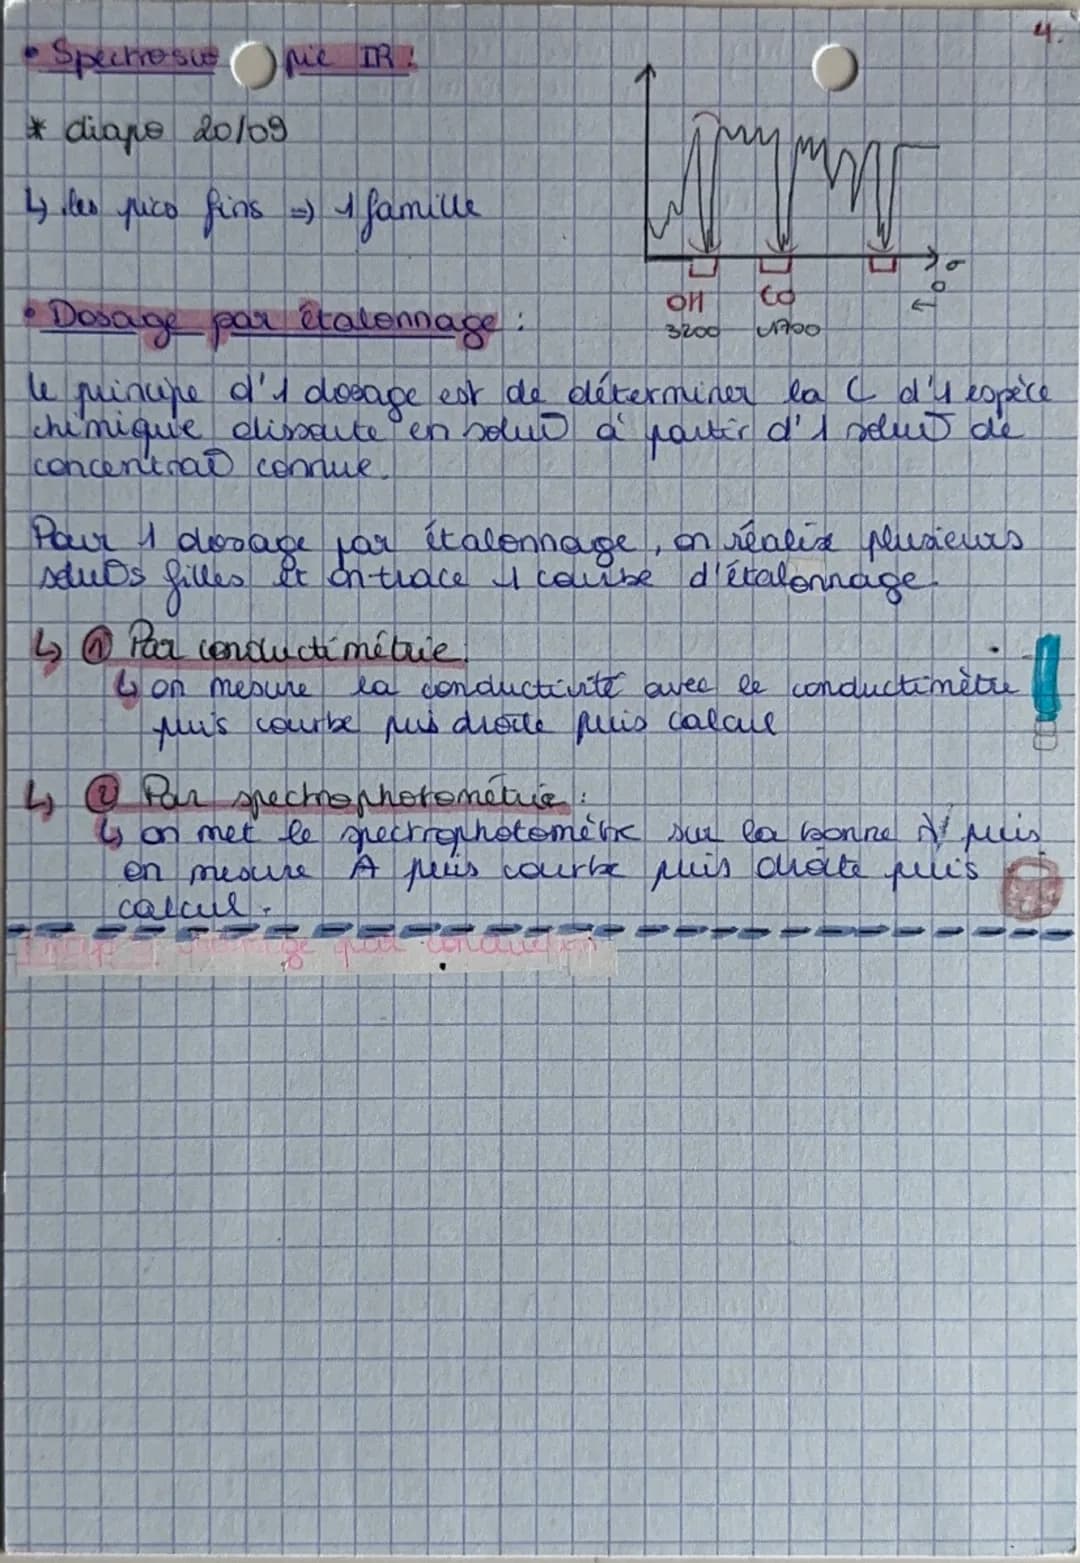 4.
• Spectrosco pie IR :
* diapo 20/09
↳ les pics fins => 1 famille
σ
← 0
OH CO
3200 1700
• Dosage par étalonnage :
le principe d'1 dosage est de déterminer la C d'1 espèce
chimique dissoute en solut° à partir d'1 solut° de
concentrat° connue.
Pour 1 dosage par étalonnage, on réalise plusieurs
solut°s filles et on trace 1 courbe d'étalonnage.
↳ ① Par conductimétrie :
↳ on mesure la conductivité avec le conductimètre
puis courbe puis droite puis calcul
↳ ② Par spectrophotométrie :
↳ on met le spectrophotomètre sur la bonne λ puis
on mesure A puis courbe puis droite puis
calcul.